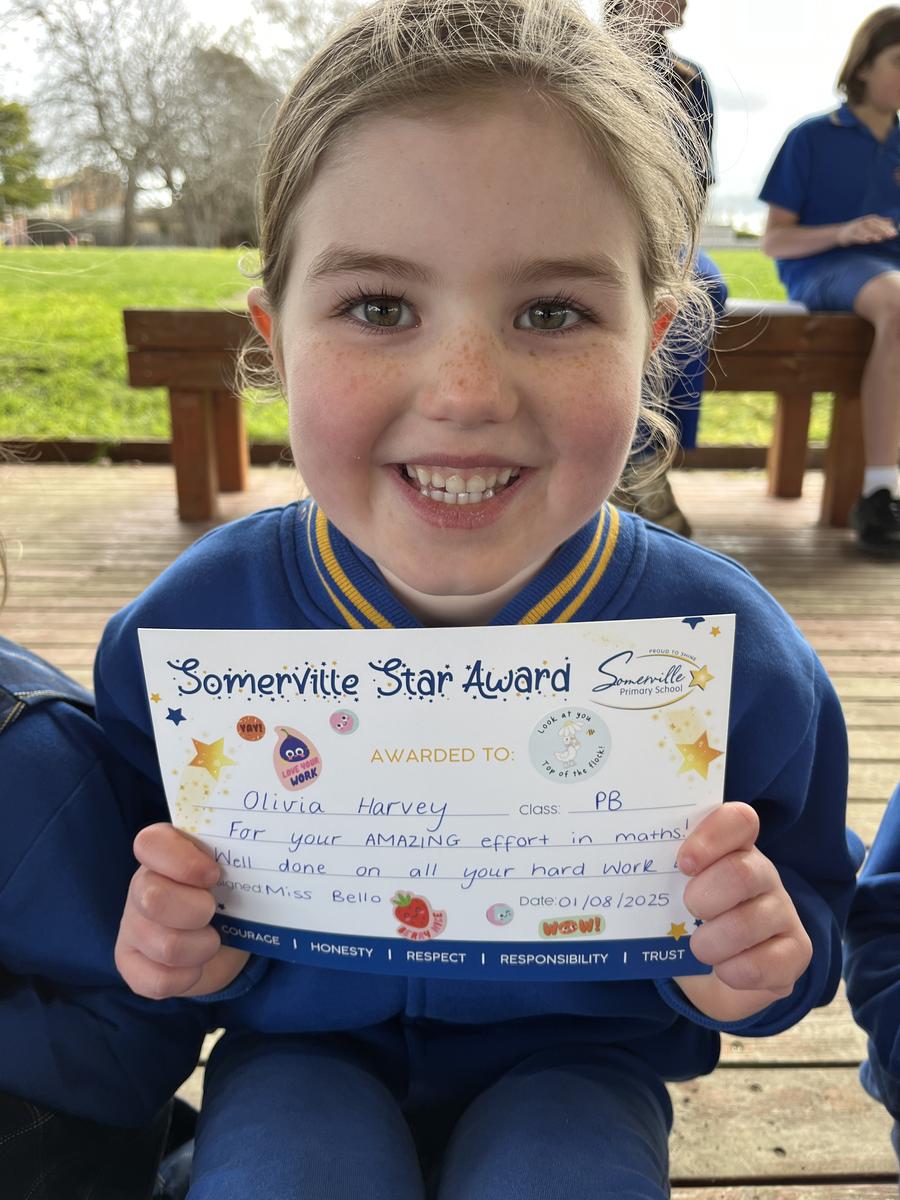 Somerville Star Award
PROUD TO SHINE
Somerville
Primary School
YAY!
LOVE YOUR
WORK
AWARDED TO:
Look at you
Top of the flock!
Olivia Harvey Class: PB
For your AMAZING effort in maths!
Well done on all your hard work
Signed Miss Bello Date: 01/08/2025
BERRY NICE
WOW!
COURAGE | HONESTY | RESPECT | RESPONSIBILITY | TRUST